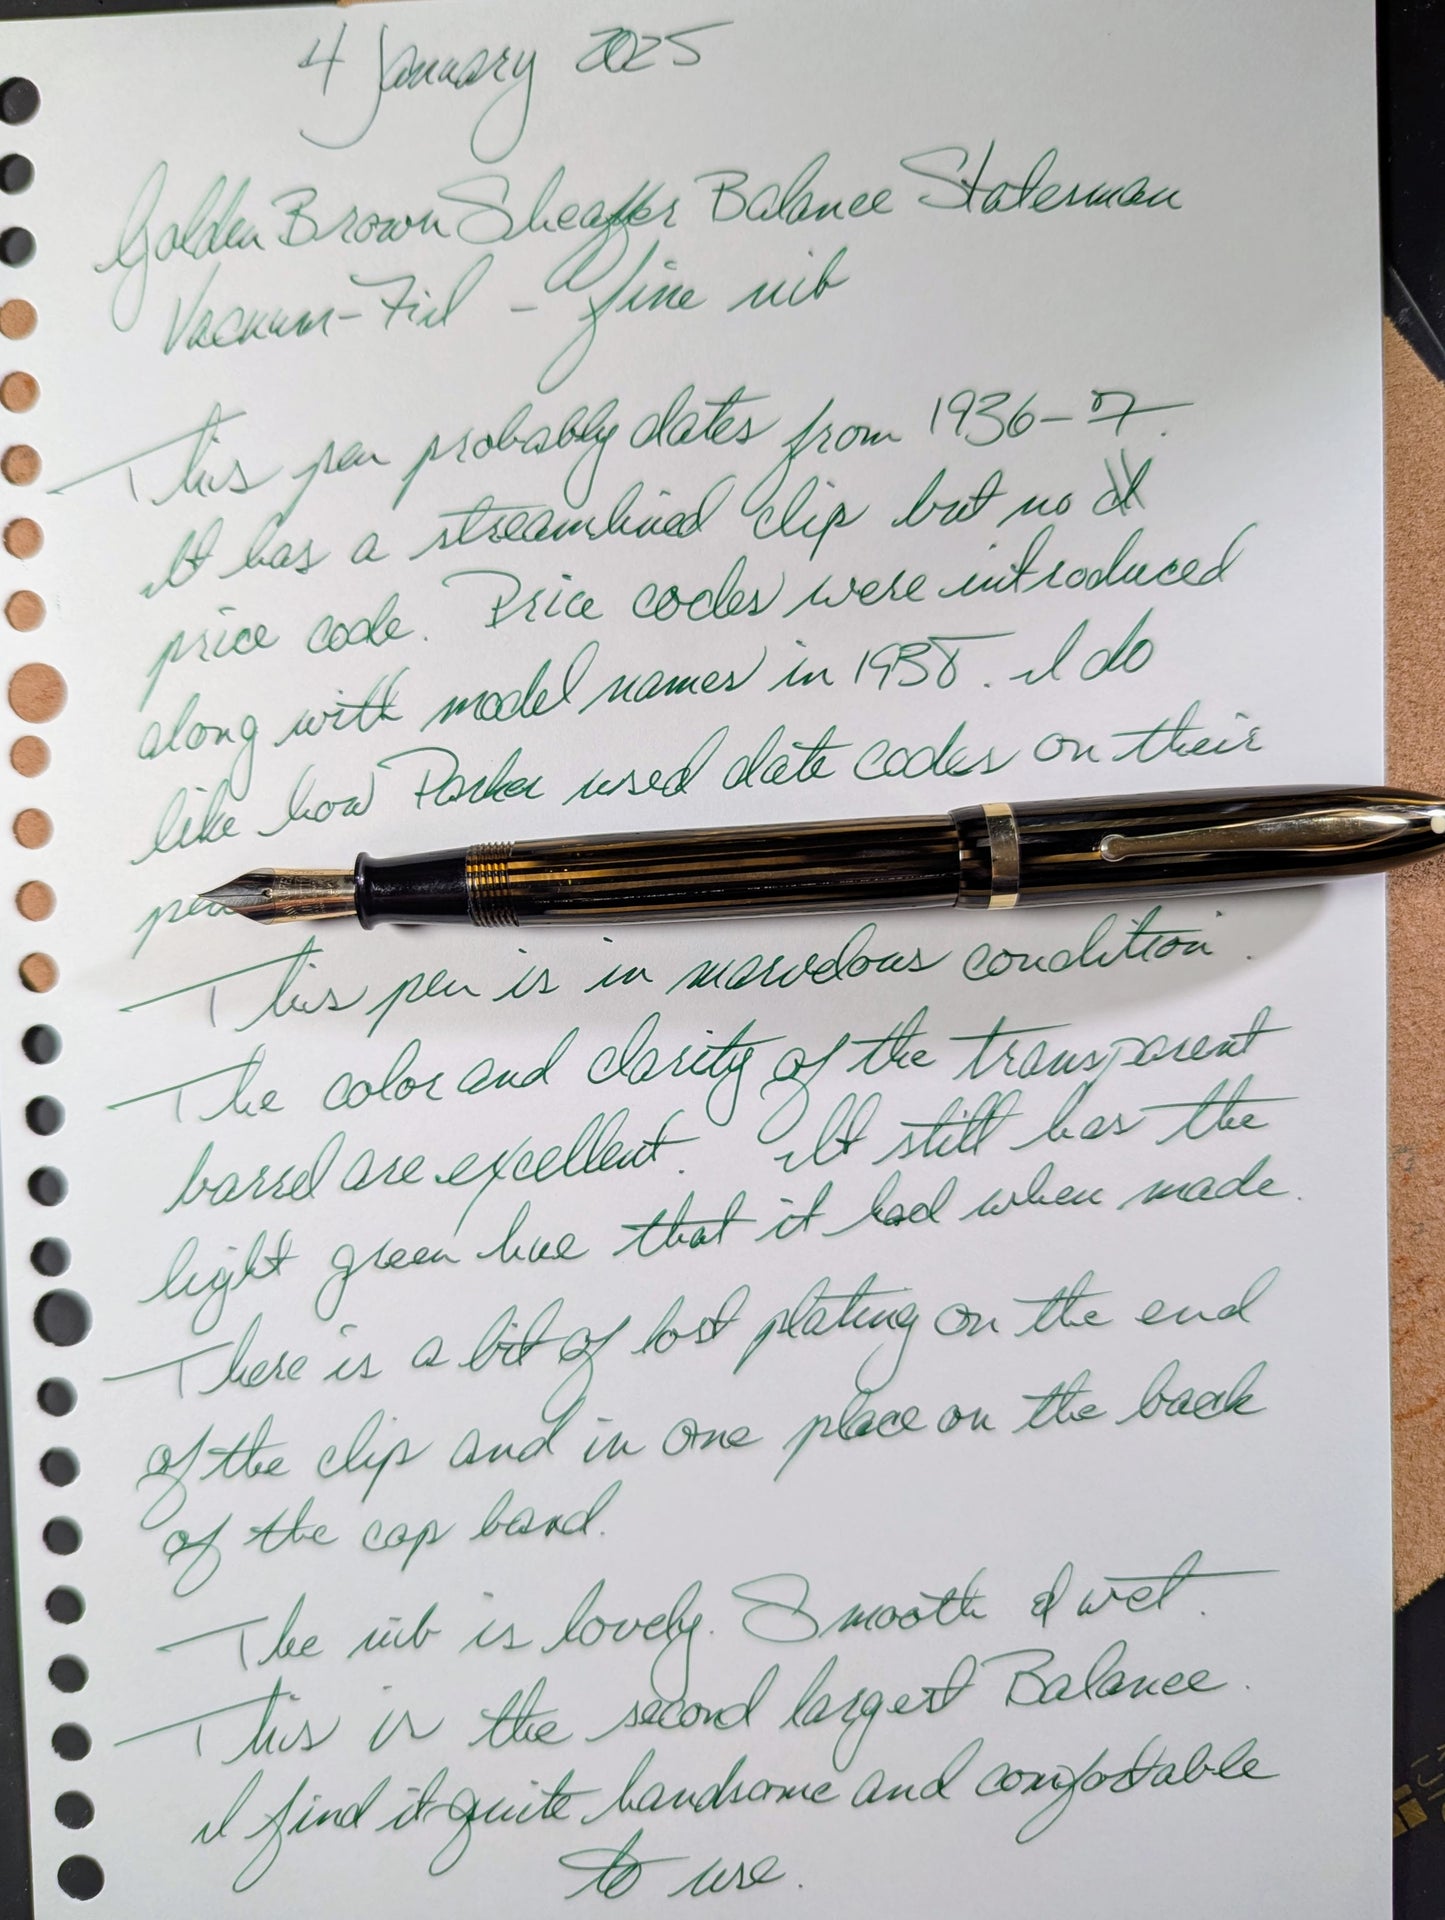 4 January 2025
Golden Brown Sheaffer Balance Statesman
Vacuum-Fil - fine nib
This pen probably dates from 1936-7.
It has a streamlined clip but no
price code. Price codes were introduced
along with model names in 1938. I do
like how Parker used date codes on their
This pen is in marvelous condition.
The color and clarity of the transparent
barrel are excellent. It still has the
light green hue that it had when made.
There is a bit of lost plating on the end
of the clip and in one place on the back
of the cap band.
The nib is lovely. Smooth & wet.
This is the second largest Balance.
I find it quite handsome and comfortable
to use.